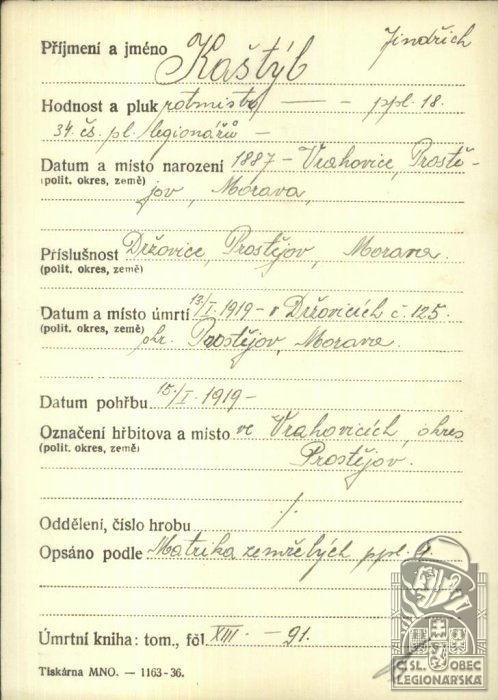 Příjmení a jméno Kaštýl Jindřich
Hodnost a pluk rotmistr — - ppl. 18.
34. čs. pl. legionářů —
Datum a místo narození 1887 - Vrahovice, Prostě-
(polit. okres, země) jov, Morava,
Příslušnost Držovice, Prostějov, Morava.
(polit. okres, země)
Datum a místo úmrtí 13/I. 1919 - v Držovicích č. 125.
(polit. okres, země) okr. Prostějov, Morava.
Datum pohřbu 15./I. 1919 -
Označení hřbitova a místo ve Vrahovicích, okres
(polit. okres, země) Prostějov.
Oddělení, číslo hrobu /.
Opsáno podle Matrika zemřelých ppl. 9.
Úmrtní kniha: tom., fol. XIII. - 91.
Tiskárna MNO. — 1163-36.
ČSL. OBEC
LEGIONÁŘSKÁ